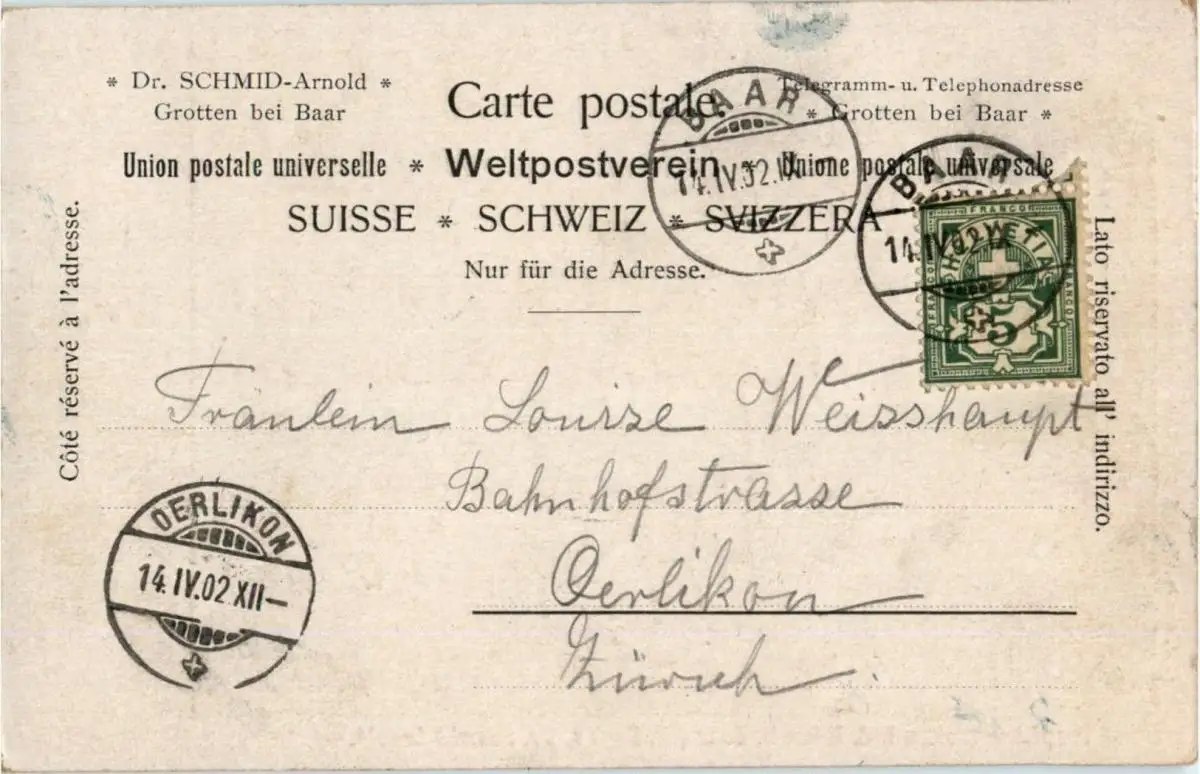 * Dr. SCHMID-Arnold *
Grotten bei Baar
Carte postale.
Telegramm- u. Telephonadresse
* Grotten bei Baar *
Union postale universelle * Weltpostverein * Unione postale universale
SUISSE * SCHWEIZ * SVIZZERA
Nur für die Adresse.
Côté réservé à l'adresse.
Lato riservato all' indirizzo.
BAAR
14.IV.02.IX
BAAR
14.IV.02.IX
FRANCO
FRANCO
FRANCO
HELVETIA
5
Fräulein Louise Weisshaupt
Bahnhofstrasse
Oerlikon
Zürich.
OERLIKON
14.IV.02.XII—